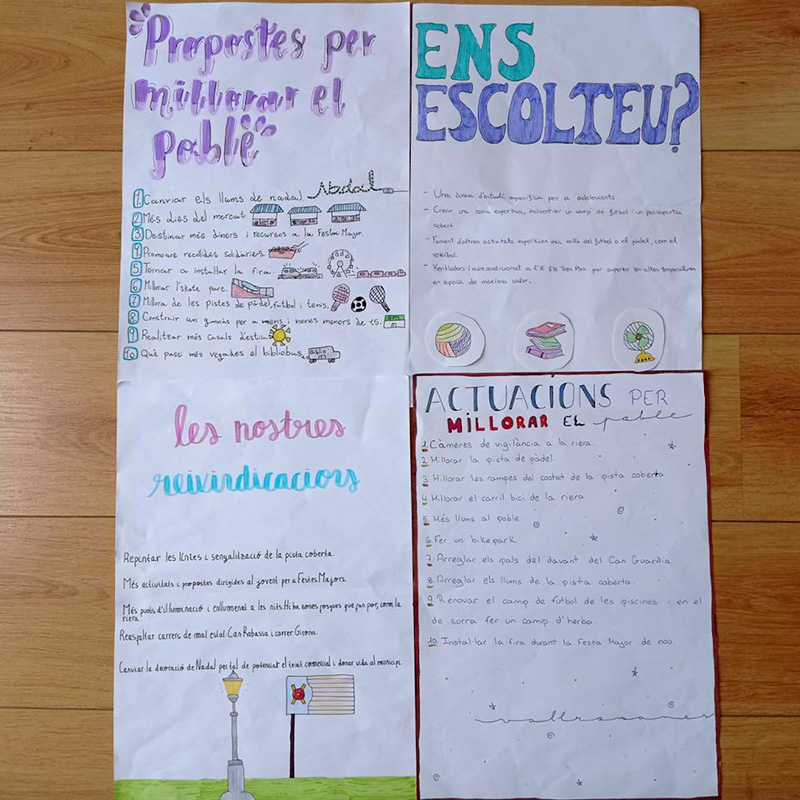 Propostes per
millorar el
poble
1 Canviar els llums de nadal. Nadal
2 Més dies del mercat.
3 Destinar més diners i recursos a la Festa Major.
4 Promoure recollides solidaries.
5 Tornar a instal·lar la fira.
6 Millorar l'skate parc.
7 Millora de les pistes de pàdel, futbol i tenis.
8 Construir un gimnàs per a nens i nenes menors de 15.
9 Realitzar més casals d'estiu
10 Què passi més vegades el bibliobus.
ENS
ESCOLTEU?
- Una àrea d'estudi específica per a adolescents.
- Crear una zona esportiva, un camp de futbol i un poliesportiu
cobert
- Foment d'altres activitats esportives més enllà del futbol o el pàdel, com el
voleibol.
- Ventiladors i aire condicionat a l'IE Els Tres Pins per suportar les altes temperatures
en època de màxima calor.
les nostres
reivindicacions
Repintar les línies i senyalització de la pista coberta.
Més activitats i propostes dirigides al jovent per a Festes Majors.
Més punts d'il·luminació i enllumenat a les nits. Hi ha zones fosques que fan por, com la
riera.
Reasfaltar carrers de mal estat: Can Rabassa i carrer Girona.
Canviar la decoració de Nadal per tal de potenciar el teixit comercial i donar vida al municipi.
ACTUACIONS PER
MILLORAR EL poble
1. Càmeres de vigilància a la riera.
2. Millorar la pista de pàdel.
3. Millorar les rampes del costat de la pista coberta.
4. Millorar el carril bici de la riera.
5. Més llums al poble.
6. Fer un bikepark.
7. Arreglar els pals del davant del Can Guardia.
8. Arreglar els llums de la pista coberta.
9. Renovar el camp de futbol de les piscines i en el
de sorra fer un camp d'herba.
10. Instal·lar la fira durant la Festa Major de nou.